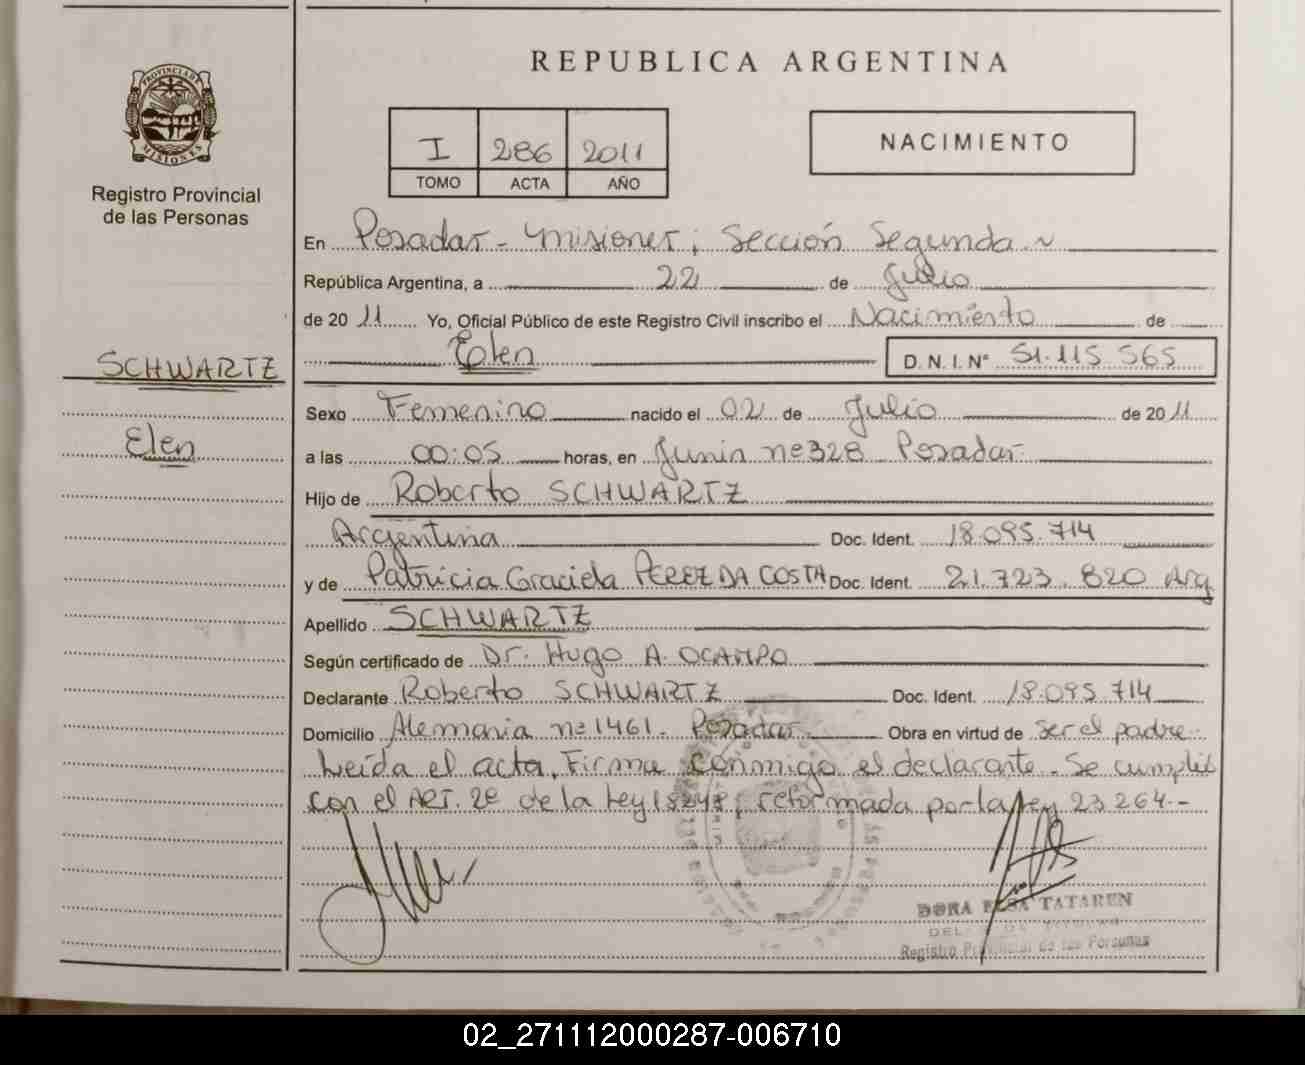 REPUBLICA ARGENTINA
PROVINCIA DE MISIONES
Registro Provincial
de las Personas
I 286 2011
TOMO ACTA AÑO
NACIMIENTO
En Posadas - Misiones; Sección Segunda
República Argentina, a 22 de Julio
de 2011 Yo, Oficial Público de este Registro Civil inscribo el Nacimiento de
Elen D. N. I. N° 51.115.565
SCHWARTZ
Elen
Sexo Femenino nacido el 02 de Julio de 2011
a las 00:05 horas, en Junin nº 328 Posadas
Hijo de Roberto SCHWARTZ
Argentina Doc. Ident. 18.095.714
y de Patricia Graciela PEREZ DA COSTA Doc. Ident. 21.723.820 Arg
Apellido SCHWARTZ
Según certificado de Dr. Hugo A. OCAMPO
Declarante Roberto SCHWARTZ Doc. Ident. 18.095.714
Domicilio Alemania nº 1461. Posadas Obra en virtud de ser el padre.
Leída el acta, Firma conmigo el declarante. Se cumplió
con el ART. 2º de la Ley 18248, reformada por la Ley 23264.-
DORA ELSA TATAREN
Registro Provincial de las Personas
02_271112000287-006710